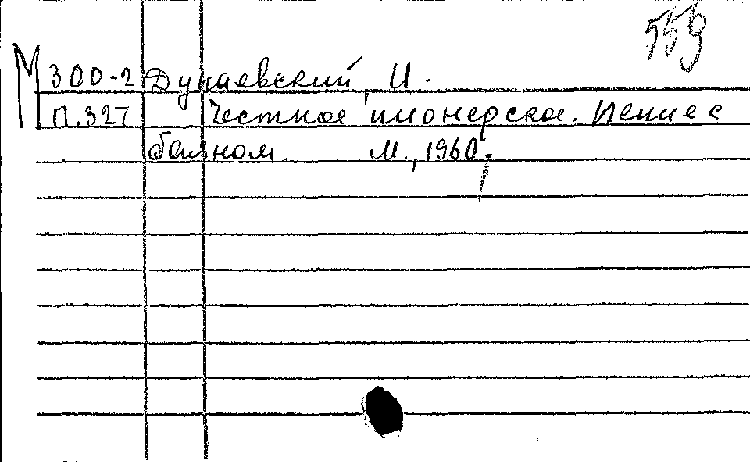 559
М 300-2 Дунаевский, И.
П.327 Честное пионерское. Пение с
баяном М., 1960.